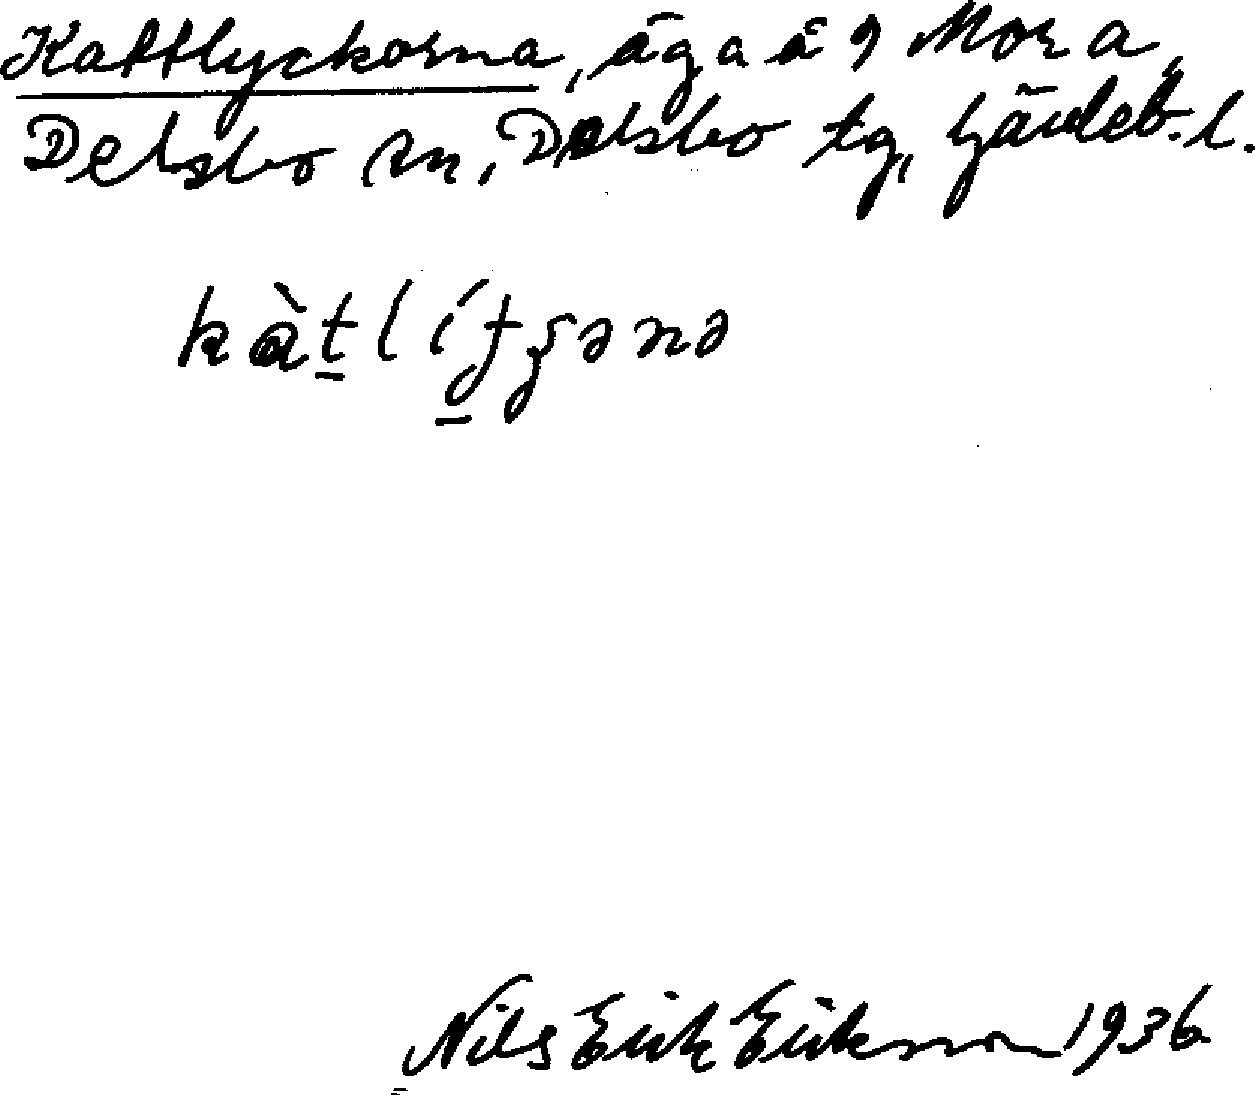 Kattlyckorna, äga å 9 Mora,
Delsbo sn, Delsbo tg, Gävleb. l.
kàt̲lítʂənə
Nils Erik Eriksson 1936